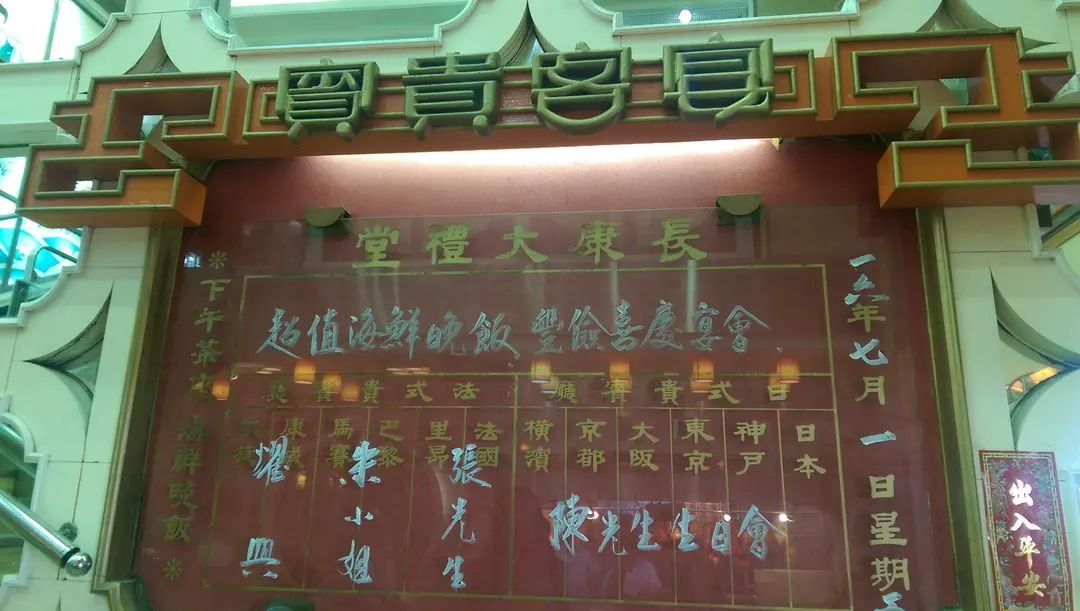 長康大禮堂
一六年七月一日星期五
超值海鮮晚飯 豐儉喜慶宴會
日式貴賓廳
法式貴賓
日本
神戶
東京
大阪
京都
橫濱
法國
里昂
巴黎
馬賽
康城
陳先生生日會
張先生
朱小姐
耀興
※下午茶 海鮮晚飯※
出入平安